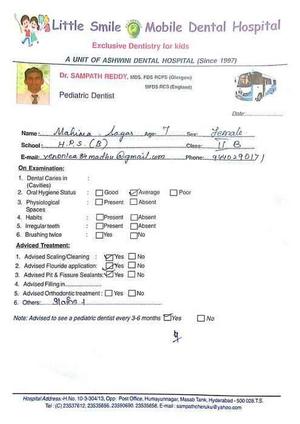 Little Smile Mobile Dental Hospital
Exclusive Dentistry for kids
A UNIT OF ASHWINI DENTAL HOSPITAL (Since 1997)
Dr. SAMPATH REDDY, MDS. FDS RCPS (Glasgow)
MFDS RCS (England)
Pediatric Dentist
Date:
Name: Mahima Sagar Age: 7 Sex: Female
School: H.P.S. (B) Class: II B
E-mail: @gmail.com Phone:
On Examination:
1. Dental Caries in :
(Cavities)
2. Oral Hygiene Status : Good Average Poor
3. Physiological : Present Absent
Spaces
4. Habits : Present Absent
5. Irregular teeth : Present Absent
6. Brushing twice : Yes No
Adviced Treatment:
1. Advised Scaling/Cleaning : Yes No
2. Advised Flouride application: Yes No
3. Advised Pit & Fissure Sealants: Yes No
4. Advised Filling in
5. Advised Orthodontic treatment : Yes No
6. Others:
Note: Advised to see a pediatric dentist every 3-6 months Yes No
Hospital Address: H.No. 10-3-304/13, Opp. Post Office, Humayunnagar, Masab Tank, Hyderabad - 500 028.T.S.
Tel : (C) 23537612, 23535656, 23390690, 23335858. E-mail : sampathcheruku@yahoo.com